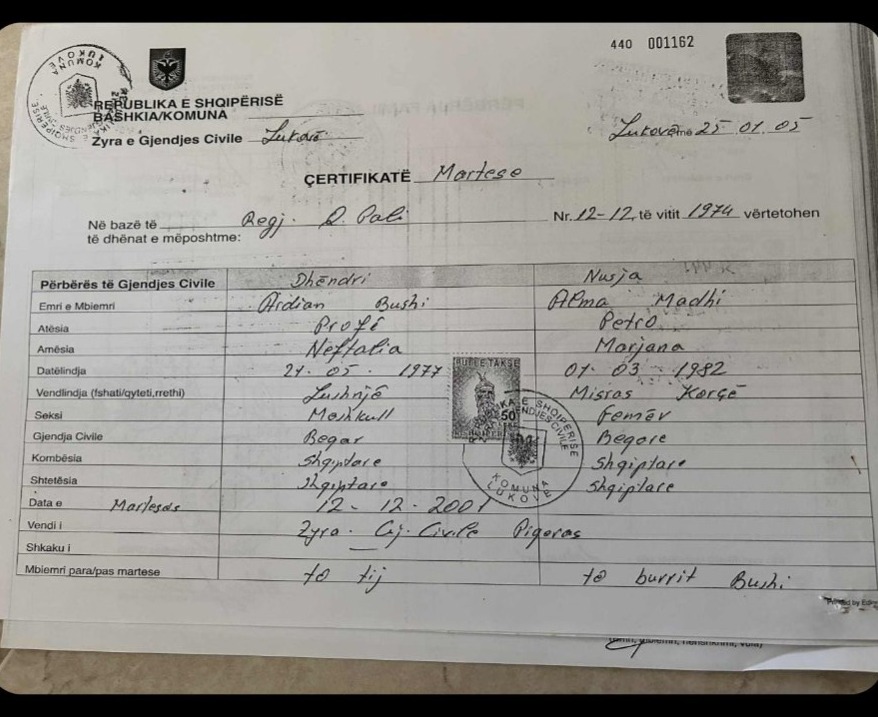 440 001162
KOMUNA LUKOVË
REPUBLIKA E SHQIPËRISË
BASHKIA/KOMUNA
Zyra e Gjendjes Civile Lukovë
Lukovë më 25 01 05
ÇERTIFIKATË Martese
Në bazë të Regj. Q. Pali Nr. 12-12, të vitit 1974 vërtetohen
të dhënat e mëposhtme:
Përbërës të Gjendjes Civile Dhëndri Nusja
Emri e Mbiemri Ardian Bushi Alma Madhi
Atësia Profi Petro
Amësia Neftalia Marjana
Datëlindja 21. 05. 1977 01. 03. 1982
Vendlindja (fshati/qyteti,rrethi) Lushnjë Misras Korçë
Seksi Mashkull Femër
Gjendja Civile Beqar Beqare
Kombësia Shqiptare Shqiptare
Shtetësia Shqiptare Shqiptare
Data e Martesës 12. 12. 2001
Vendi i Zyra. Gj. Civile Piqeras
Shkaku i —
Mbiemri para/pas martese të tij të burrit Bushi
50
REPUBLIKA E SHQIPERISE
GJENDJES CIVILE
KOMUNA
LUKOVE